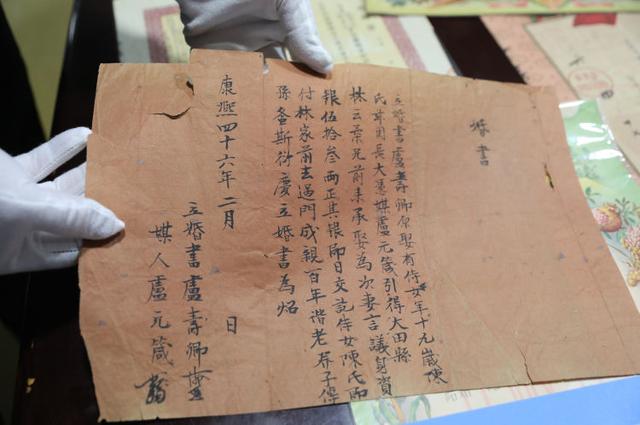 婚書
立婚書盧壽卿原娶有侍女年十九歲陳
氏茲因長大憑媒盧元箴引得大田縣
林云榮兄前來承娶為次妻言議身資
銀伍拾叁両正其銀即日交訖侍女陳氏即
付林家前去過門成親百年諧老子傳
孫螽斯衍慶立婚書為炤
康熙四十六年二月 日
立婚書盧壽卿
媒人盧元箴